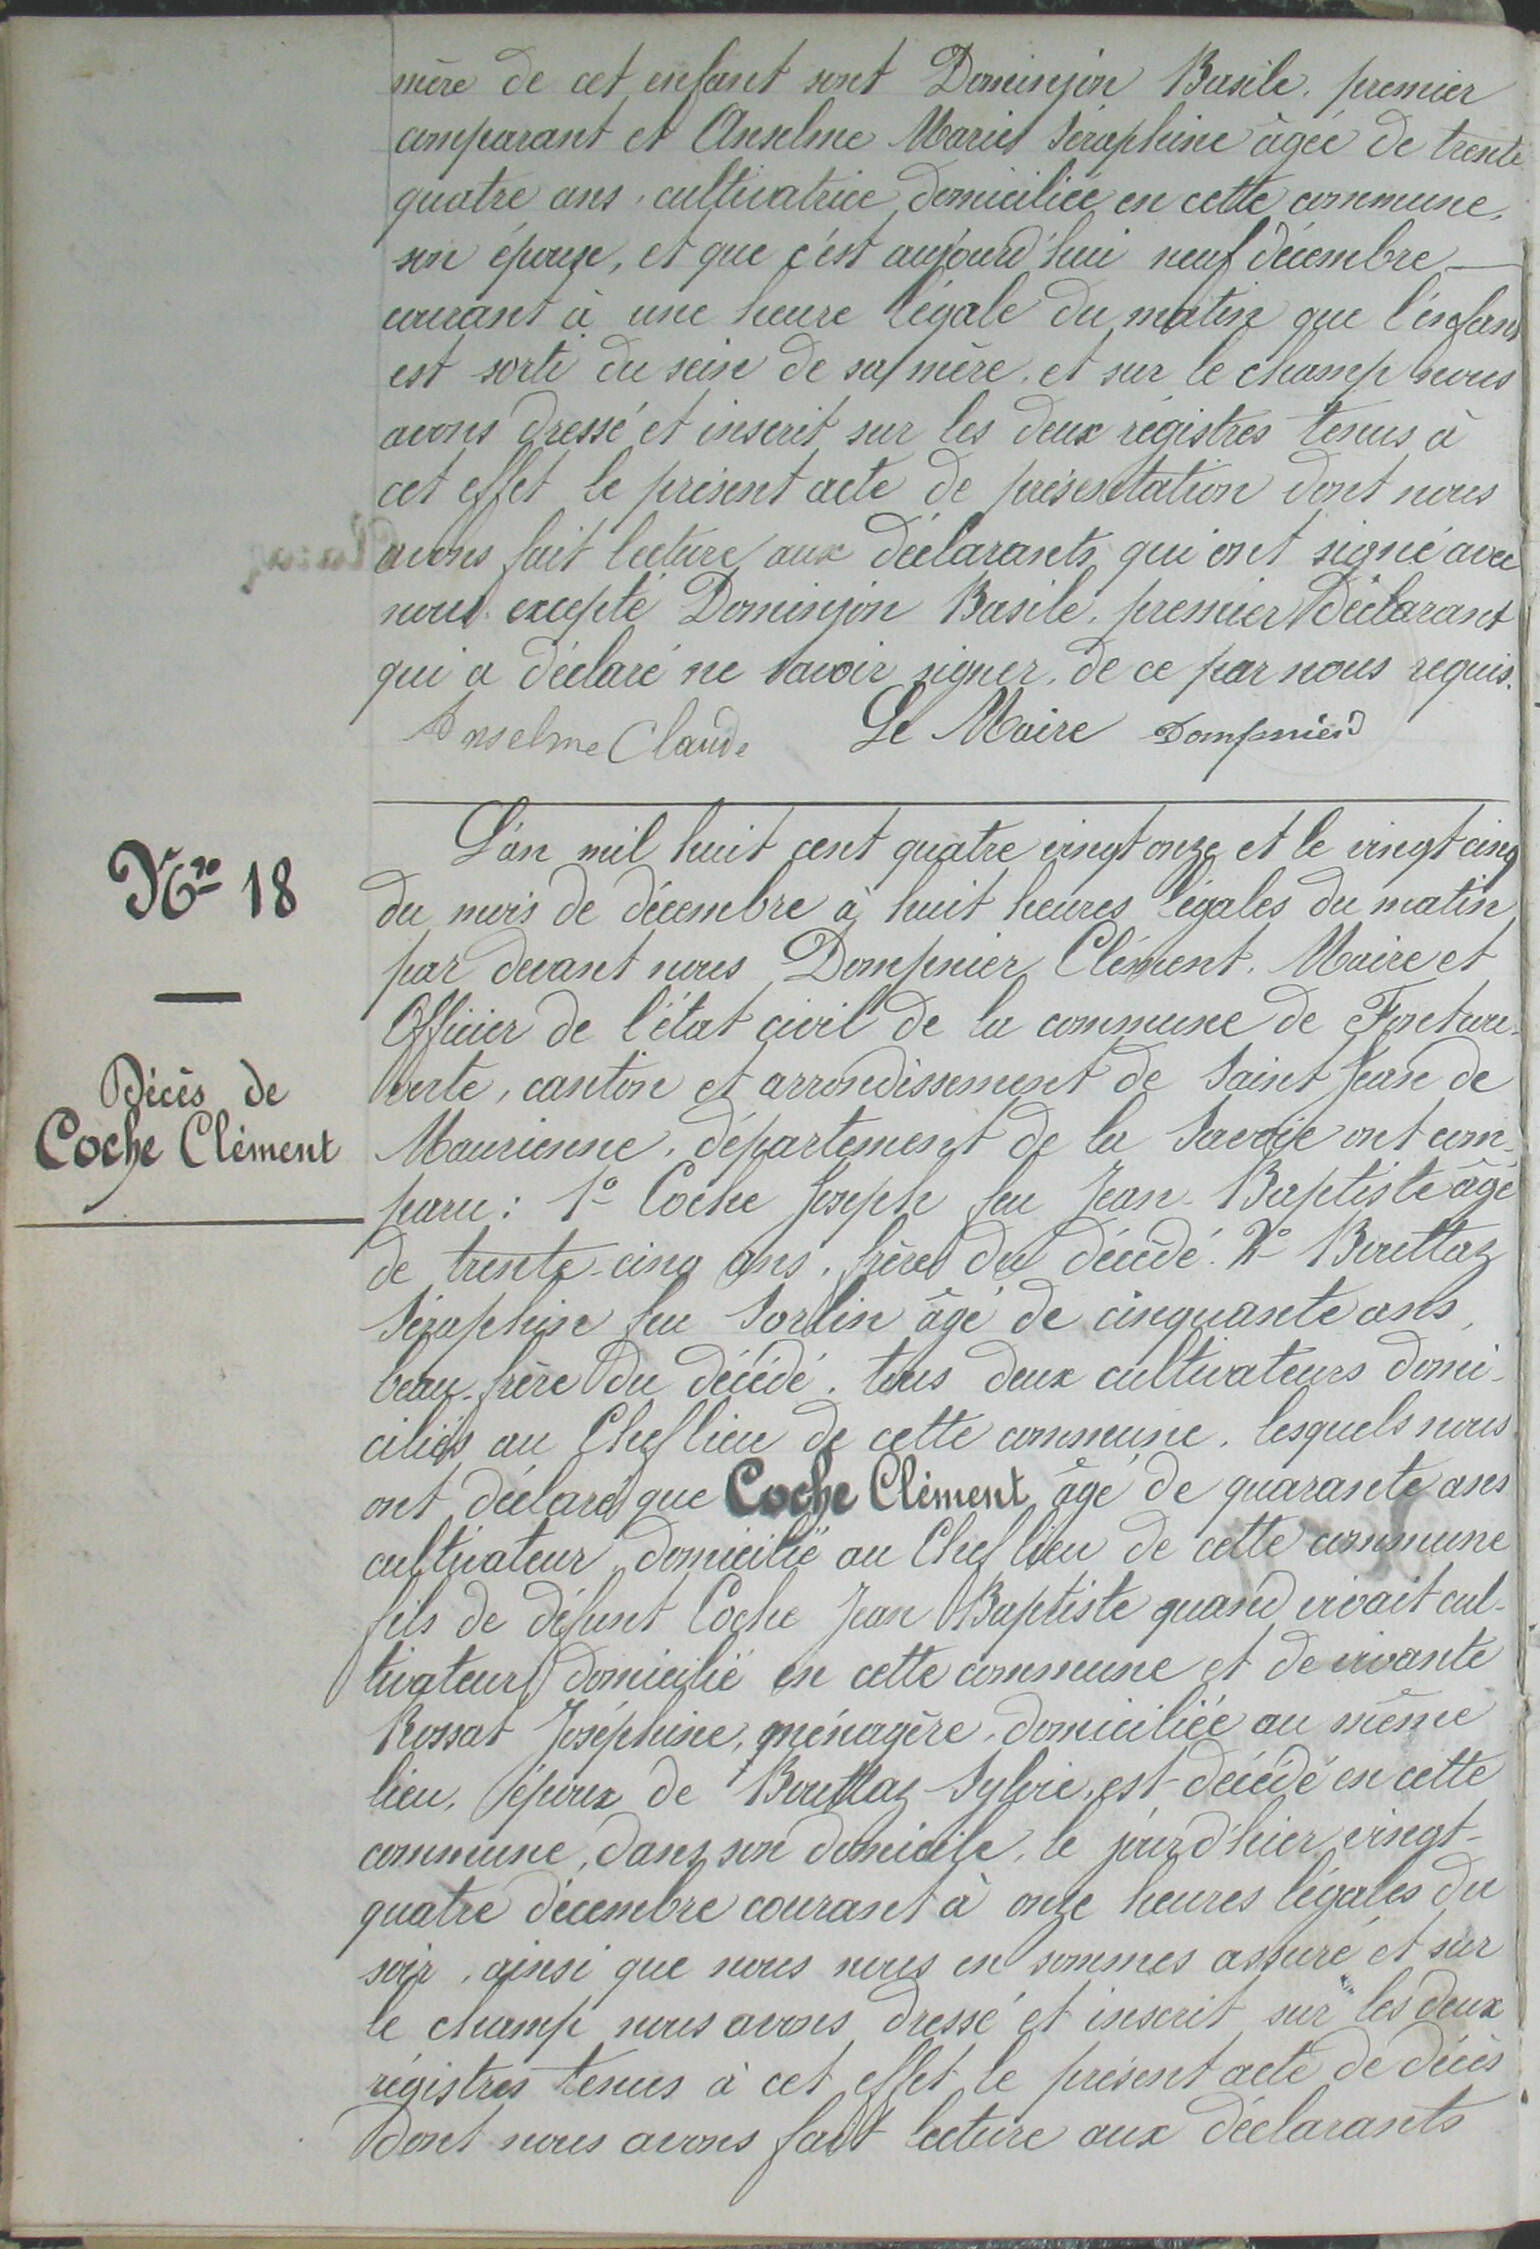 mère de cet enfant sont Dominjon Basile, premier
comparant et Anselme Marie Séraphine âgée de trente
quatre ans, cultivatrice domiciliée en cette commune,
son épouse, et que c'est aujourd'hui neuf décembre
courant à une heure légale du matin que l'enfant
est sorti du sein de sa mère, et sur le champ nous
avons dressé et inscrit sur les deux régistres tenus à
cet effet le présent acte de présentation dont nous
avons fait lecture aux déclarants qui ont signé avec
nous excepté Dominjon Basile, premier déclarant
qui a déclaré ne savoir signer, de ce par nous requis.
Anselme Claude Le Maire Dompnier
Nro 18
Décès de
Coche Clément
L'an mil huit cent quatre vingt onze et le vingt cinq
du mois de décembre à huit heures légales du matin
par devant nous Dompnier Clément, Maire et
Officier de l'état civil de la commune de Fontcou-
verte, canton et arrondissement de Saint Jean de
Maurienne, département de la Savoie ont com-
paru : 1º Coche Joseph feu Jean-Baptiste âgé
de trente-cinq ans, frère du décédé. 2º Bouttaz
Séraphin feu Sorlin âgé de cinquante ans,
beau-frère du décédé, tous deux cultivateurs domi-
ciliés au Chef lieu de cette commune, lesquels nous
ont déclaré que Coche Clément âgé de quarante ans
cultivateur, domicilié au Chef lieu de cette commune
fils de défunt Coche Jean Baptiste quand vivait cul-
tivateur domicilié en cette commune et de vivante
Rossat Joséphine, ménagère, domiciliée au même
lieu, époux de Bouttaz Sylvie, est décédé en cette
commune, dans son domicile, le jour d'hier vingt-
quatre décembre courant à onze heures légales du
soir, ainsi que nous nous en sommes assuré et sur
le champ nous avons dressé et inscrit sur les deux
régistres tenus à cet effet le présent acte de décès
dont nous avons fait lecture aux déclarants